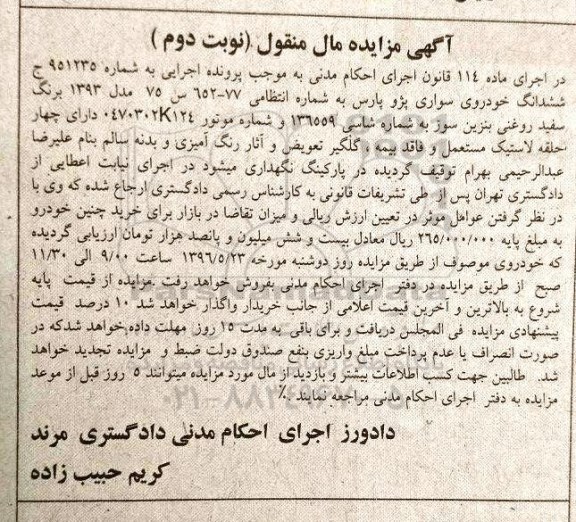 آگهی مزایده مال منقول (نوبت دوم )
در اجرای ماده ۱۱٤ قانون اجرای احکام مدنی به موجب پرونده اجرایی به شماره ۹۵۱۲۳۵ ج
ششدانگ خودروی سواری پژو پارس به شماره انتظامی ۷۷-٦۵۲ س ۷۵ مدل ۱۳۹۳ برنگ
سفید روغنی بنزین سوز به شماره شاسی ۱۳٦۵۵۹ و شماره موتور ۰٤۷۰۳۰۲K۱۲٤ دارای چهار
حلقه لاستیک مستعمل و فاقد بیمه ، گلگیر تعویض و آثار رنگ آمیزی و بدنه سالم بنام علیرضا
عبدالرحیمی بهرام توقیف گردیده در پارکینگ نگهداری میشود در اجرای نیابت اعطایی از
دادگستری تهران پس از طی تشریفات قانونی به کارشناس رسمی دادگستری ارجاع شده که وی با
در نظر گرفتن عوامل موثر در تعیین ارزش ریالی و میزان تقاضا در بازار برای خرید چنین خودرو
به مبلغ پایه ۲٦۵/۰۰۰/۰۰۰ ریال معادل بیست و شش میلیون و پانصد هزار تومان ارزیابی گردیده
که خودروی موصوف از طریق مزایده روز دوشنبه مورخه ۱۳۹٦/۵/۲۳ ساعت ۹/۰۰ الی ۱۱/۳۰
صبح از طریق مزایده در دفتر اجرای احکام مدنی بفروش خواهد رفت .مزایده از قیمت پایه
شروع به بالاترین و آخرین قیمت اعلامی از جانب خریدار واگذار خواهد شد ۱۰ درصد قیمت
پیشنهادی مزایده فی المجلس دریافت و برای باقی به مدت ۱۵ روز مهلت داده،خواهد شدکه در
صورت انصراف یا عدم پرداخت مبلغ واریزی بنفع صندوق دولت ضبط و مزایده تجدید خواهد
شد. طالبین جهت کسب اطلاعات بیشتر و بازدید از مال مورد مزایده میتوانند ۵ روز قبل از موعد
مزایده به دفتر اجرای احکام مدنی مراجعه نمایند ٪
دادورز اجرای احکام مدنی دادگستری مرند
کریم حبیب زاده